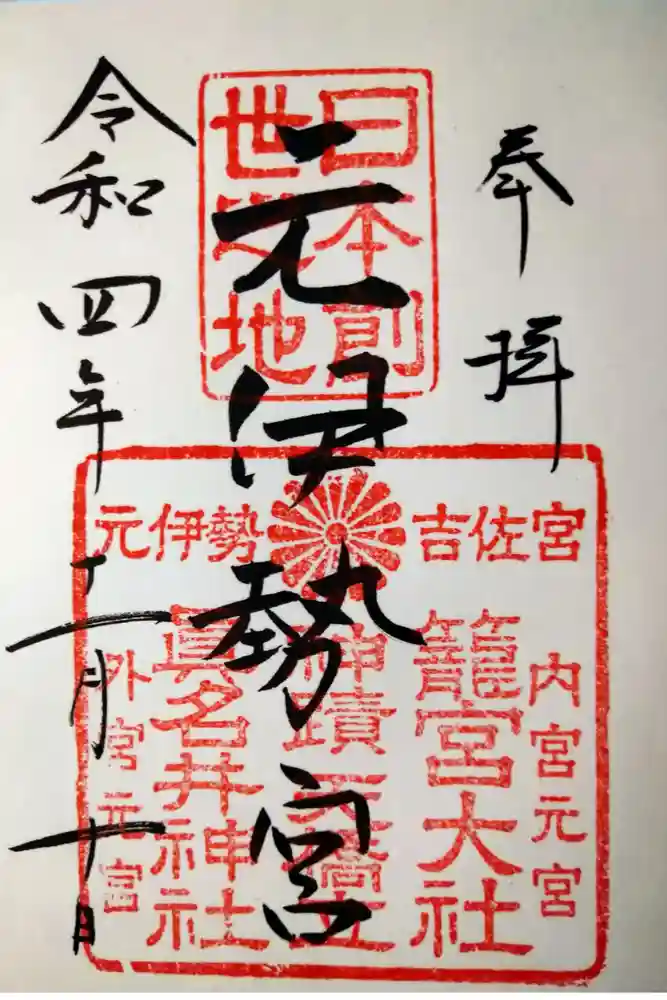 奉拝
日本創
世之地
元伊勢宮
吉佐宮
元伊勢
内宮元宮
籠宮大社
神蹟天橋立
真名井神社
外宮元宮
令和四年十一月十日